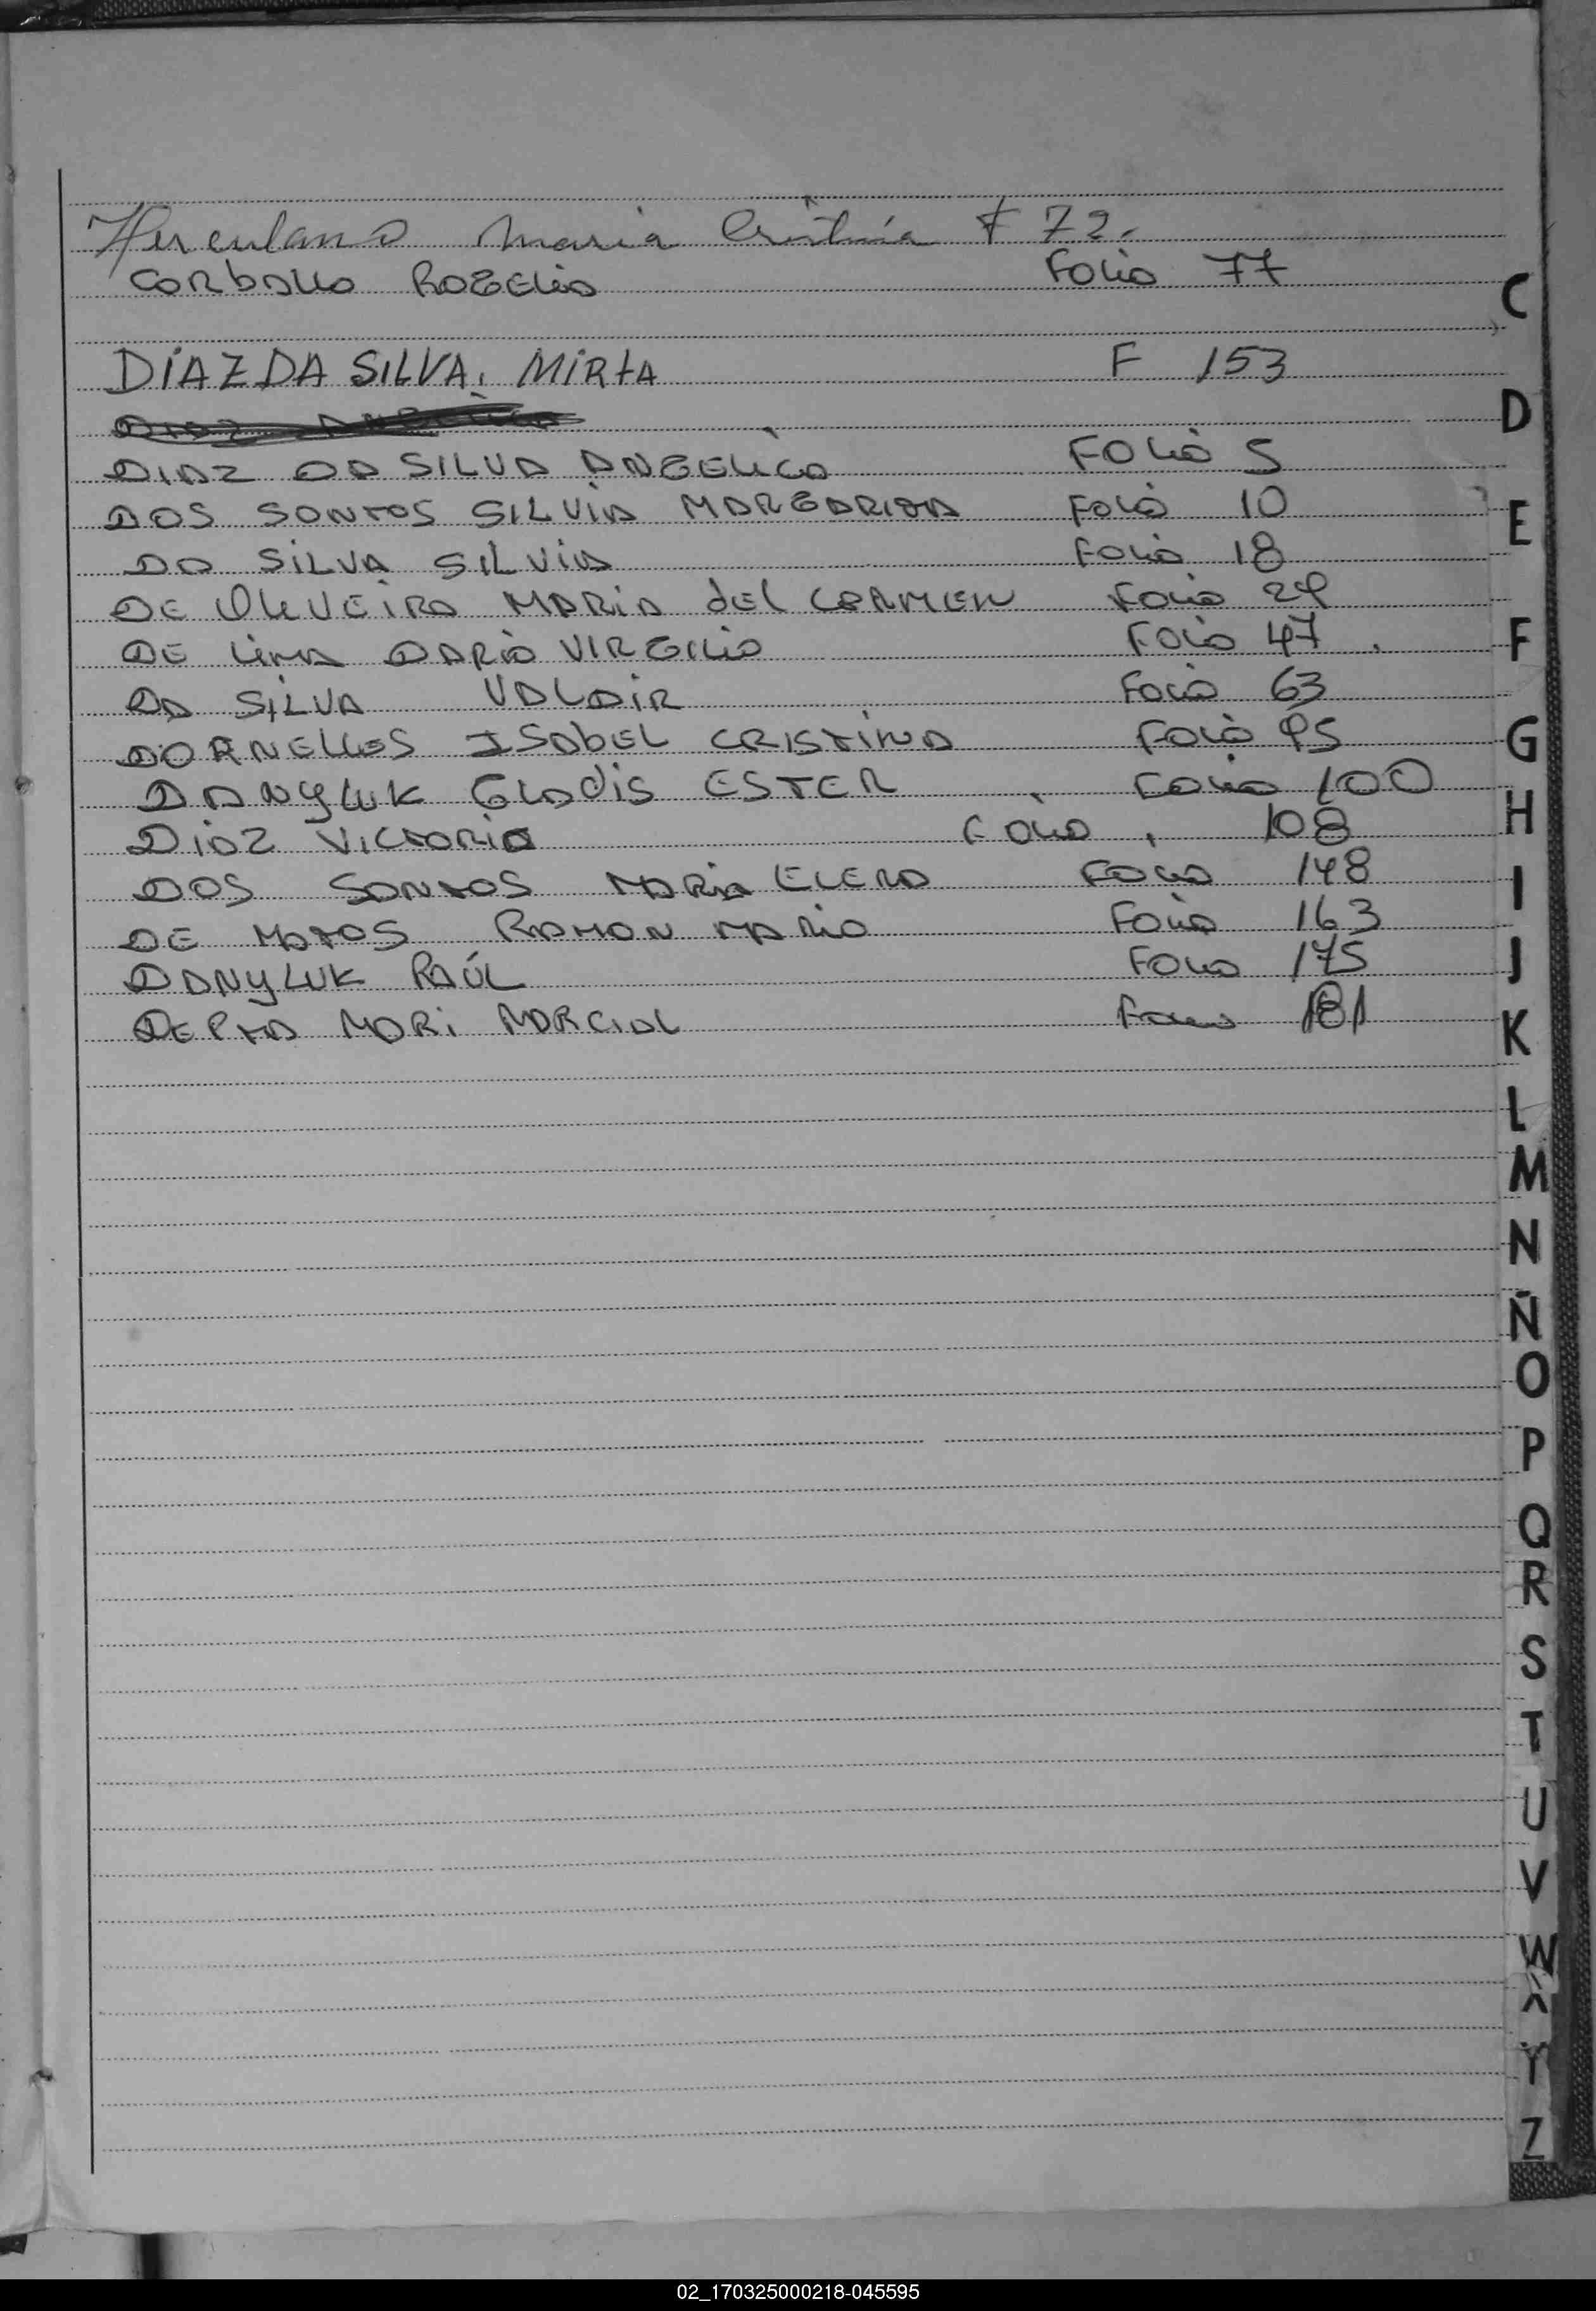 Herculano Maria Cristina F 72.
CORbALLO ROGELIO FOLIO 77
DIAZ DA SILVA, MIRTA F 153
DIAZ ANGELICA
DIAZ DA SILVA ANGELICA FOLIO 5
DOS SANTOS SILVIA MARGARITA FOLIO 10
DA SILVA SILVIA FOLIO 18
DE OLIVEIRA MARIA dEL CARMEN FOLIO 29
DE LIMA DARIO VIRGILIO FOLIO 47
DA SILVA VALDIR FOLIO 63
DORNELLES ISAbEL CRISTINA FOLIO 95
DANYLUK GLADIS ESTER FOLIO 100
DIAZ VICTORIA FOLIO 108
DOS SANTOS MARIA ELENA FOLIO 148
DE MATOS RAMON MARIO FOLIO 163
DANYLUK RAÚL FOLIO 175
MARCIAL FOLIO 181
C
D
E
F
G
H
I
J
K
L
M
N
Ñ
O
P
Q
R
S
T
U
V
W
X
Y
Z
02_170325000218-045595